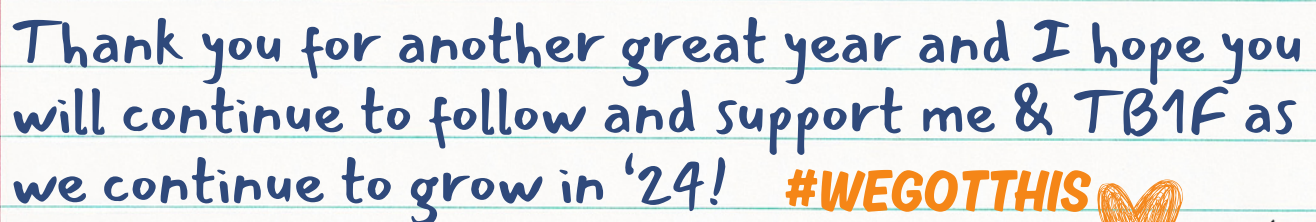 Thank you for another great year and I hope you
will continue to follow and support me & TB1F as
we continue to grow in '24! #WEGOTTHIS